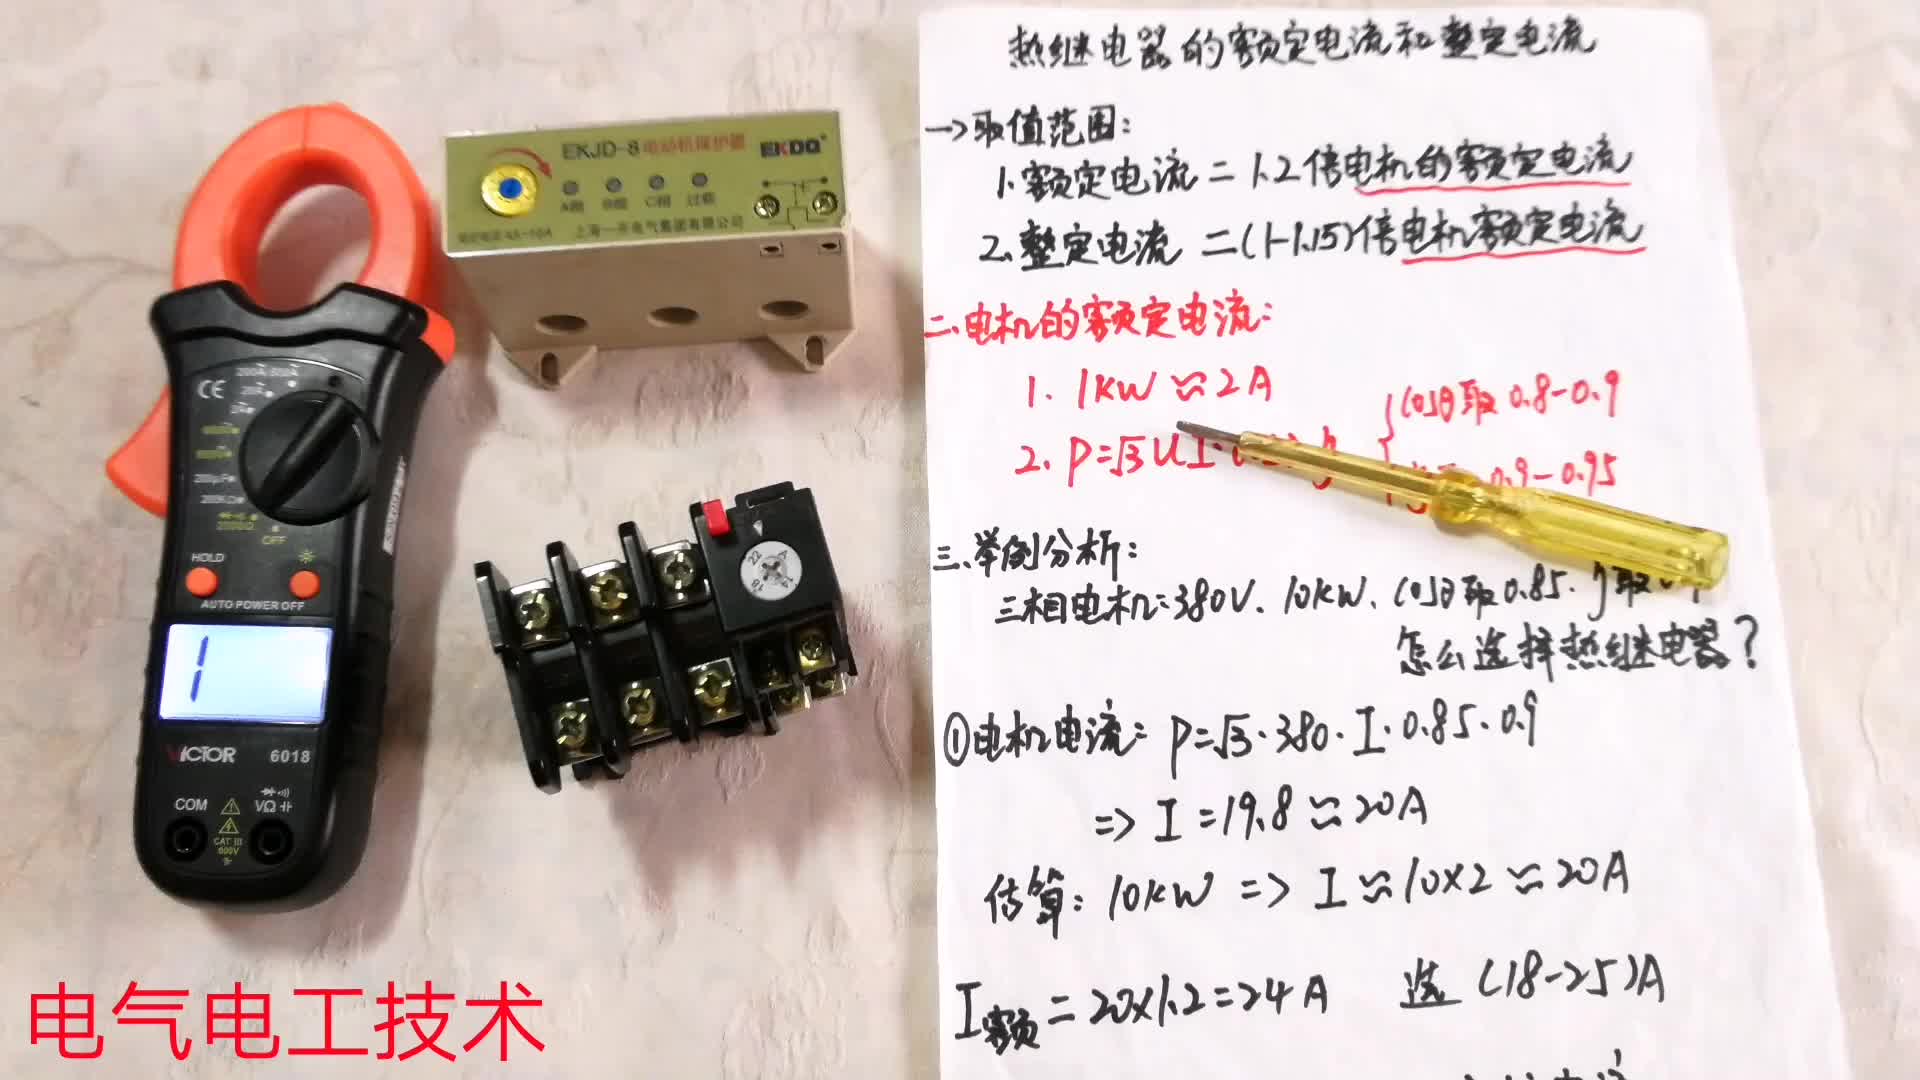 热继电器的额定电流和整定电流
一>取值范围:
1.额定电流=1.2倍电机的额定电流
2.整定电流=(1-1.15)倍电机额定电流
二.电机的额定电流:
1. 1KW≈2A
2. P=√3UI· cosθ取0.8-0.9
0.9-0.95
三.举例分析:
三相电机:380V、10KW、cosθ取0.85.η取0.9
怎么选择热继电器?
①电机电流: P=√3·380·I·0.85·0.9
=> I=19.8≈20A
估算: 10KW => I≈10×2≈20A
I额=20×1.2=24A 选(18-25)A
EKJD-8电动机保护器 EKDQ
A相 B相 C相 过载
4A-10A 上海一开电气集团有限公司
CE
200A 600A
20A
200KΩ
2000Ω
OFF
HOLD
AUTO POWER OFF
1
VICTOR 6018
COM VΩ
CAT III
600V
22 18 14
电气电工技术